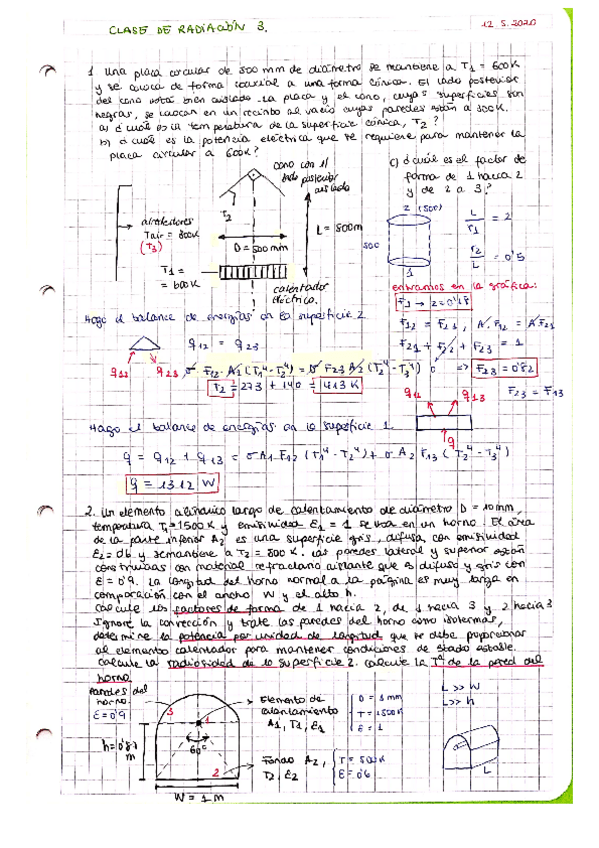 CLASE DE RADIACIÓN 3.
12.5.2020
1. Una placa circular de 500 mm de diámetro se mantiene a T1 = 600K
y se coloca de forma coaxial a una forma cónica. El lado posterior
del cono está bien aislado. La placa y el cono, cuyas superficies son
negras, se colocan en un recinto al vacío cuyas paredes están a 300K.
a) ¿cuál es la temperatura de la superficie cónica, T2?
b) ¿cuál es la potencia eléctrica que se requiere para mantener la
placa circular a 600K?
cono con el
lado posterior
aislado
c) ¿cuál es el factor de
forma de 1 hacia 2
y de 2 a 3?
alrededores
Tair = 300K
(T3)
T2
L = 500mm
D = 500 mm
T1 =
= 600K
calentador
eléctrico.
2 (500)
500
1
L/r1 = 2
r2/L = 0'5
entramos en la gráfica:
F1→2 = 0'18
Hago el balance de energías en la superficie 2
q12 = q23
F12 = F21, A1 F12 = A2 F21
F21 + F22 + F23 = 1
0
=> F23 = 0'82
q12 q23
σ F12 A1 (T1^4 - T2^4) = σ F23 A2 (T2^4 - T3^4)
T2 = 273 + 140 = 413 K
F23 = F13
q12 q13
q
Hago el balance de energías en la superficie 1.
q = q12 + q13 = σ A1 F12 (T1^4 - T2^4) + σ A2 F13 (T2^4 - T3^4)
q = 1312 W
2. Un elemento cilíndrico largo de calentamiento de diámetro D = 10mm,
temperatura T1 = 1500K y emisividad ε1 = 1 se usa en un horno. El área
de la parte inferior A2 es una superficie gris, difusa, con emisividad
ε2 = 0'6 y se mantiene a T2 = 500 K. Las paredes lateral y superior están
construidas con material refractario aislante que es difuso y gris con
ε = 0'9. La longitud del horno normal a la página es muy larga en
comparación con el ancho W y el alto h.
Calcule los factores de forma de 1 hacia 2, de 1 hacia 3 y 2 hacia 3
Ignore la convección y trate las paredes del horno como isotermas,
determine la potencia por unidad de longitud que se debe proporcionar
al elemento calentador para mantener condiciones de estado estable.
Calcule la radiosidad de la superficie 2. Calcule la Tª de la pared del
horno
paredes del
horno.
ε = 0'9
3
1
60°
2
h = 0'87
m
W = 1 m
Elemento de
calentamiento
A1, T1, ε1
T = 1500K
ε = 1
Fondo A2,
T2, ε2
T = 500K
ε = 0'6
L >> W
L >> h
L